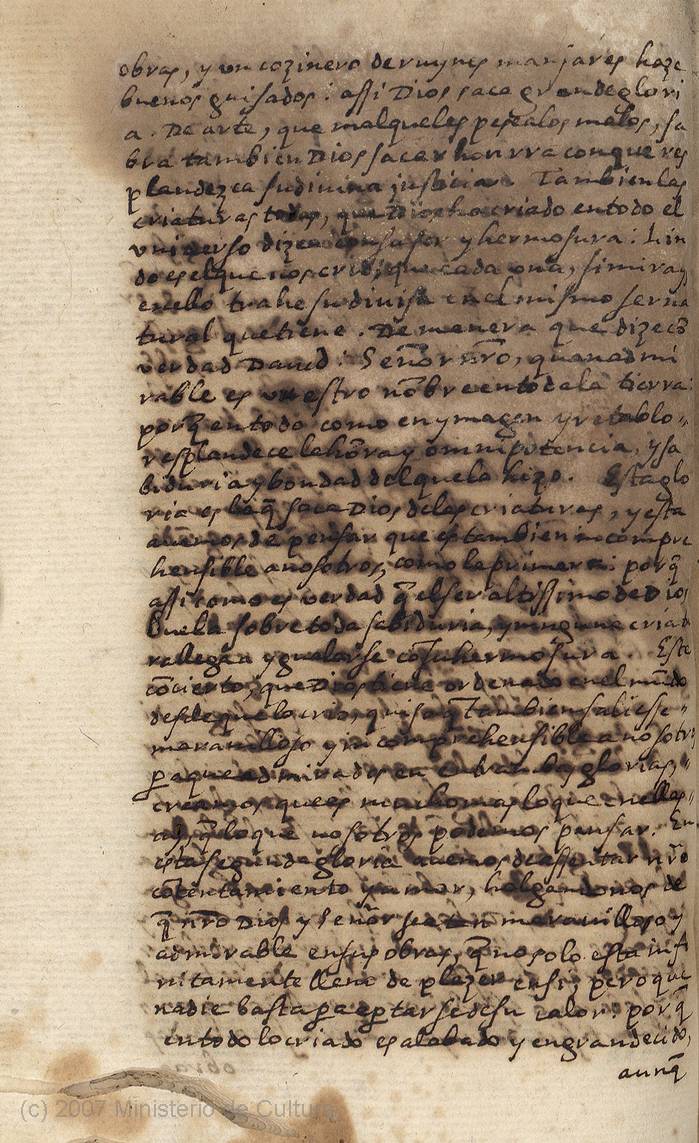 obras, y un cozinero de ruynes manjares haze
buenos guisados: assi Dios saca grande glori
a. De arte, que mal que les pese a los malos, sa
bra tambien Dios sacar honrra con que res
plandezca su divina justicia. Tambien las
criaturas todas, que Dios ha criado en todo el
universo dizen su ser y hermosura: Lin
do es el que nos crio, que cada una, si mirays
en ello trahe su divisa en el mismo ser na
tural que tiene. De manera que dize cõ
verdad David: Señor nr̃o, quan admi
rable es vuestro nõbre en toda la tierra:
porq̃ en todo como en ymagen y retablo
resplandece la hõra y omnipotencia, y sa
biduria y bondad del que la hizo. Esta glo
ria es la q̃ saca Dios de las criaturas, y esta
avemos de pensar que es tambien incompre
hensible a nosotros, como la primera: porq̃
assi como es verdad q̃ el ser altissimo de Dios
buela sobre toda sabiduria, y ninguna criatu
ra llega a ygualarse cõ su hermosura. Este
cõcierto, que Dios tiene ordenado en el mũdo
desde que lo crio, quiso q̃ tambien saliesse
maravilloso y incomprehensible a nosotros
para que admirados en entrambas glorias,
creamos que es mucho mas lo que en ellas
ay, q̃ lo que nosotros podemos pensar. En
esta segunda gloria avemos de assentar nr̃o
cõtentamiento y amor, holgandonos de
q̃ nr̃o Dios y Señor sea tan maravilloso y
admirable en sus obras, q̃ no solo esta infi
nitamente lleno de plazer en si, pero que
nadie basta para apartarse de su valor: porq̃
en todo lo criado es alabado y engrandecido,
aunq̃
(c) 2007 Ministerio de Cultura